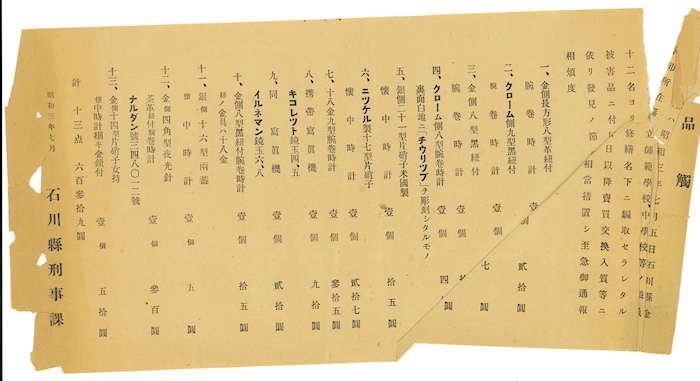 品觸
昭和三年七月五日石川縣金
立師範學校、中學校等ノ
十二名ヨリ修繕名下ニ騙取セラレタル
被害品ニ付 日以降賣買交換入質等ニ
依リ發見ノ節 相當措置シ至急御通報
相煩度
一、金側長方形八型革紐付
腕卷時計 壹個 貳拾圓
二、クローム側九型黑紐付
腕卷時計 壹個 七圓
三、金側八型黑紐付
腕卷時計 壹個
四、クローム側八型腕卷時計 壹個 四
裏面白地ニ「チウリップ」ヲ彫刻シタルモノ
五、銀側二十一型片硝子米國製
懷中時計 壹個 拾五圓
六、ニツケル製十七型片硝子
懷中時計 壹個 貳拾七圓
七、十八金九型腕卷時計 壹個 參拾五圓
八、携帶寫眞機 壹個 九拾圓
キコレツト鏡玉四、五
九、同寫眞機 壹個 貳拾圓
イルネマン鏡玉六、八
十、金側八型黑紐付腕卷時計 壹個 拾五圓
紐ノ金具ハ十八金
十一、銀側十六型兩蓋
懷中時計 壹個 五圓
十二、金側四角型夜光針
茶革紐付腕卷時計 壹個 參百圓
ナルダン號三四八〇一二號
十三、金側十四型片硝子女持
懷中時計襟キ金鎖付 壹個 五拾圓
計 十三点 六百參拾九圓
昭和三年七月
石川縣刑事課